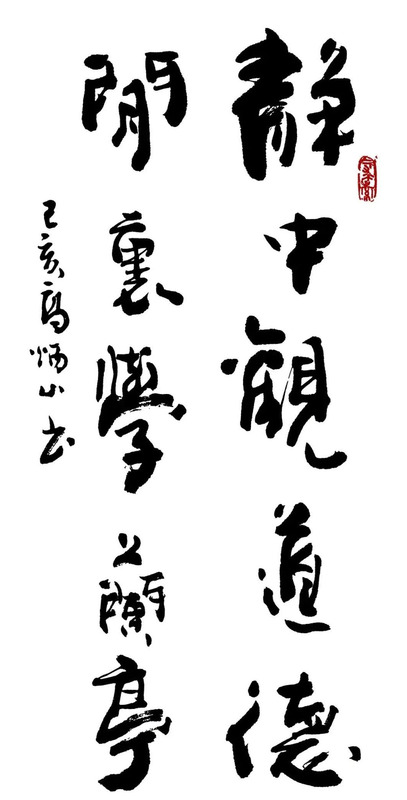 靜中觀道德
閒裏學蘭亭
己亥高炳山書